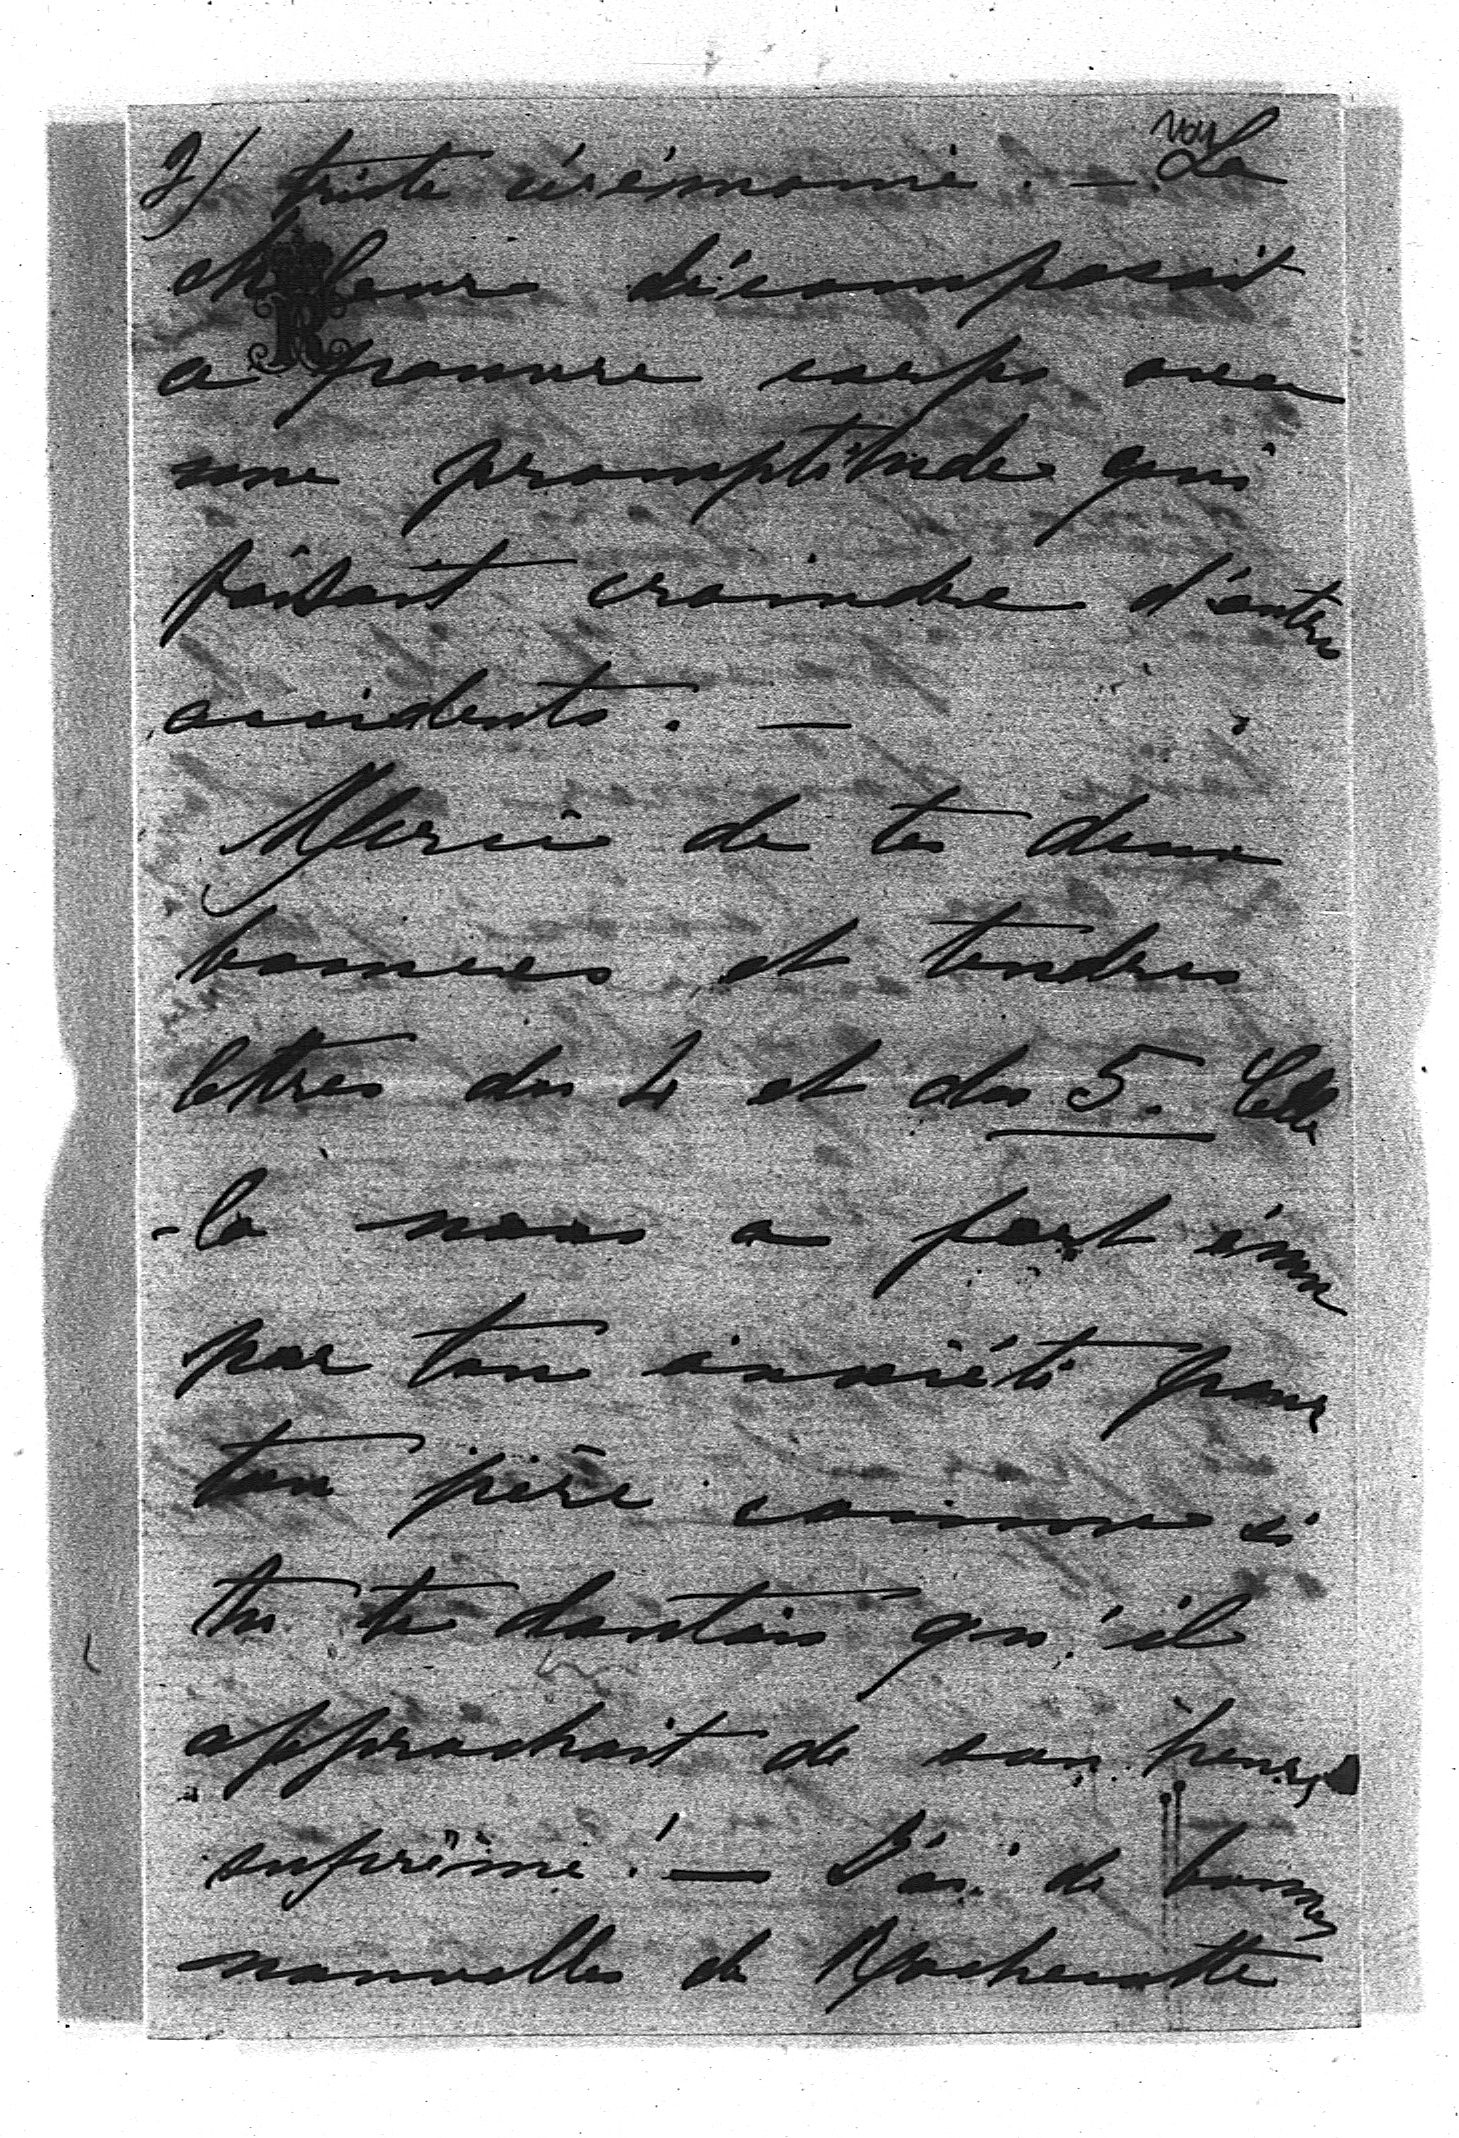 2/ triste cérémonie. — La
chaleur décomposait
ce pauvre corps avec
une promptitude qui
faisait craindre d'autres
accidents. —
Merci de tes deux
bonnes et tendres
lettres du 4 et du 5. Celle
-là nous a fort émus
par ton anxiété pour
ton père comme si
tu te doutais qu'il
approchait de son heure
suprême! — J'ai de bonnes
nouvelles de Rochecotte